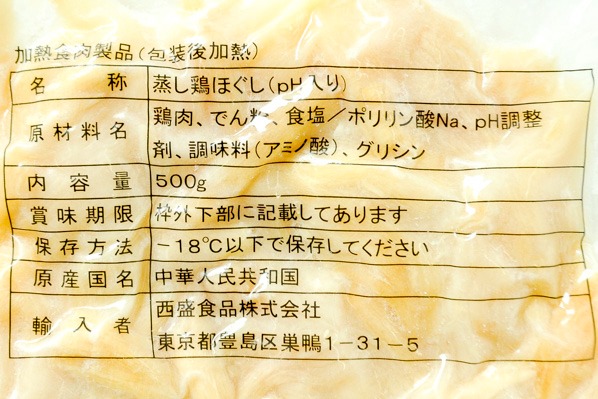 加熱食肉製品(包装後加熱)
名称 蒸し鶏ほぐし(pH入り)
原材料名 鶏肉、でん粉、食塩/ポリリン酸Na、pH調整
剤、調味料(アミノ酸)、グリシン
内容量 500g
賞味期限 枠外下部に記載してあります
保存方法 -18℃以下で保存してください
原産国名 中華人民共和国
輸入者 西盛食品株式会社
東京都豊島区巣鴨1-31-5